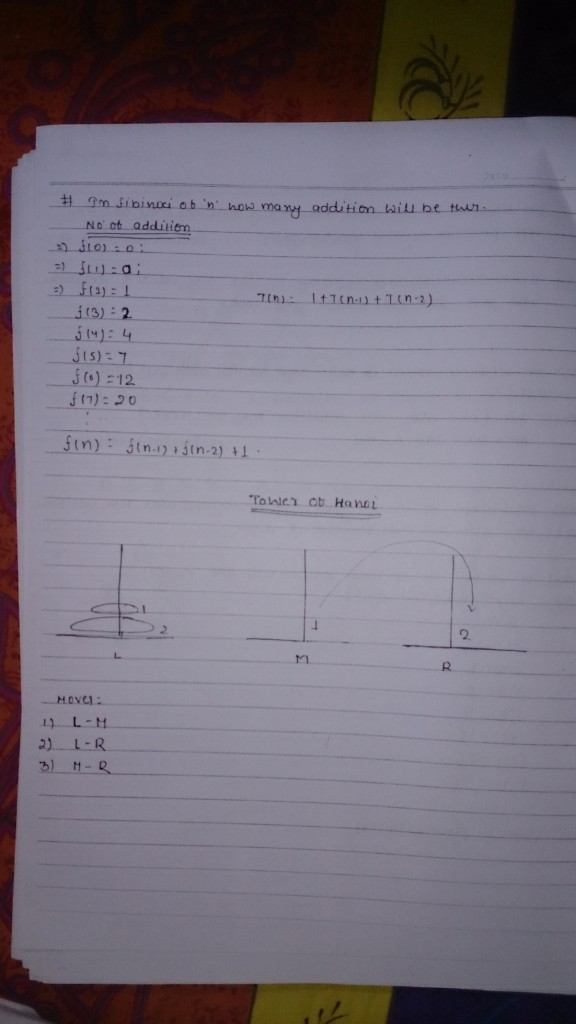 # In fibinoci of 'n' how many addition will be ther.
No of addition
=> f(0) = 0;
=> f(1) = 0;
=> f(2) = 1
T(n) = 1+T(n-1)+T(n-2)
f(3) = 2
f(4) = 4
f(5) = 7
f(6) = 12
f(7) = 20
f(n) = f(n-1) + f(n-2) + 1.
Tower of Hanoi
1
2
1
2
L
M
R
Moves:
1) L-M
2) L-R
3) M-R